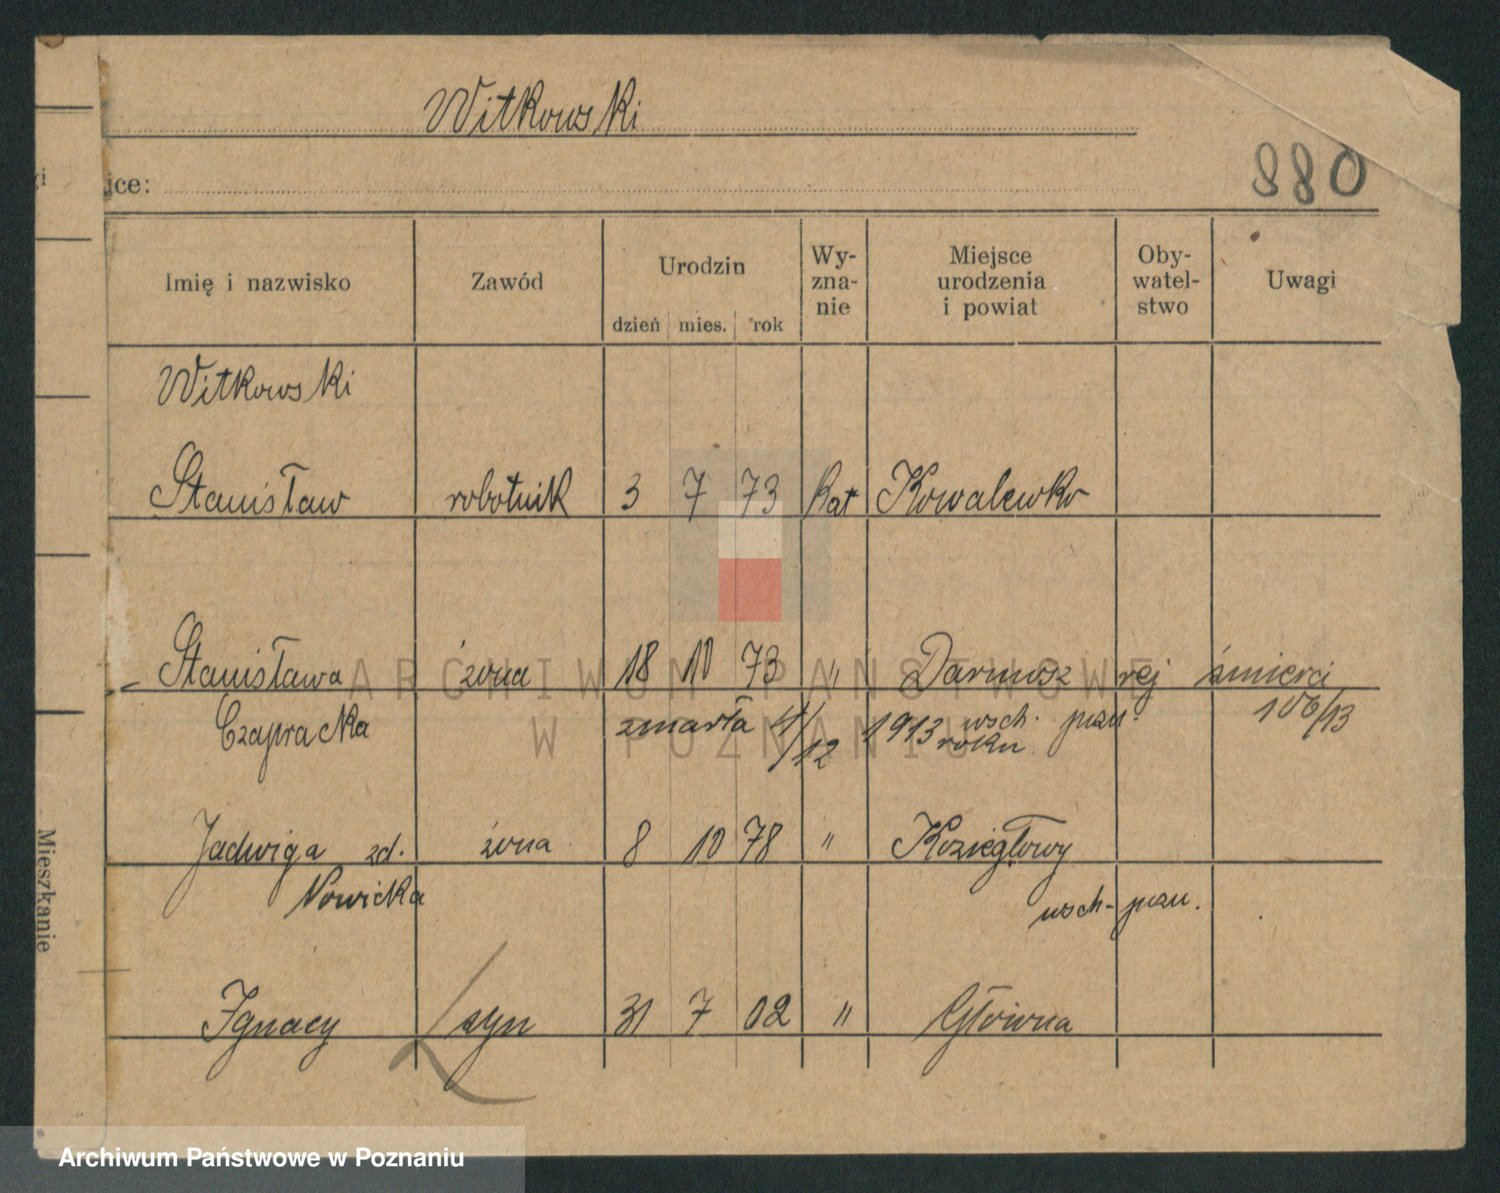 Witkowski
880
ice:
Imię i nazwisko
Zawód
Urodzin
dzień mies. rok
Wy-
zna-
nie
Miejsce
urodzenia
i powiat
Oby-
watel-
stwo
Uwagi
Witkowski
Stanisław robotnik 3 7 73 kat Kowalewko
Stanisława żona 18 10 73 " rej śmierci
Czapracka zmarła 4/12 1913 roku wsch. pozn. 106/13
Jadwiga zd. żona 8 10 78 " Koziegłowy
Nowicka wsch. pozn.
Ignacy syn 31 7 02 " Główna
gi
Mieszkanie
ARCHIWUM PAŃSTWOWE
W POZNANIU
Archiwum Państwowe w Poznaniu